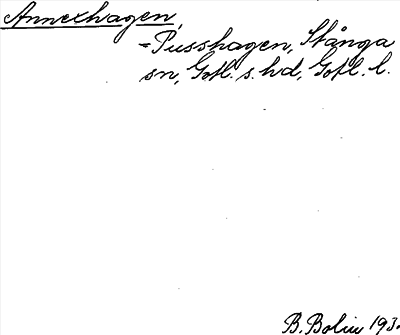 Annexhagen,
=Pusshagen, Stånga
sn, Gotl. s. hd, Gotl. l.
B. Bolin 193